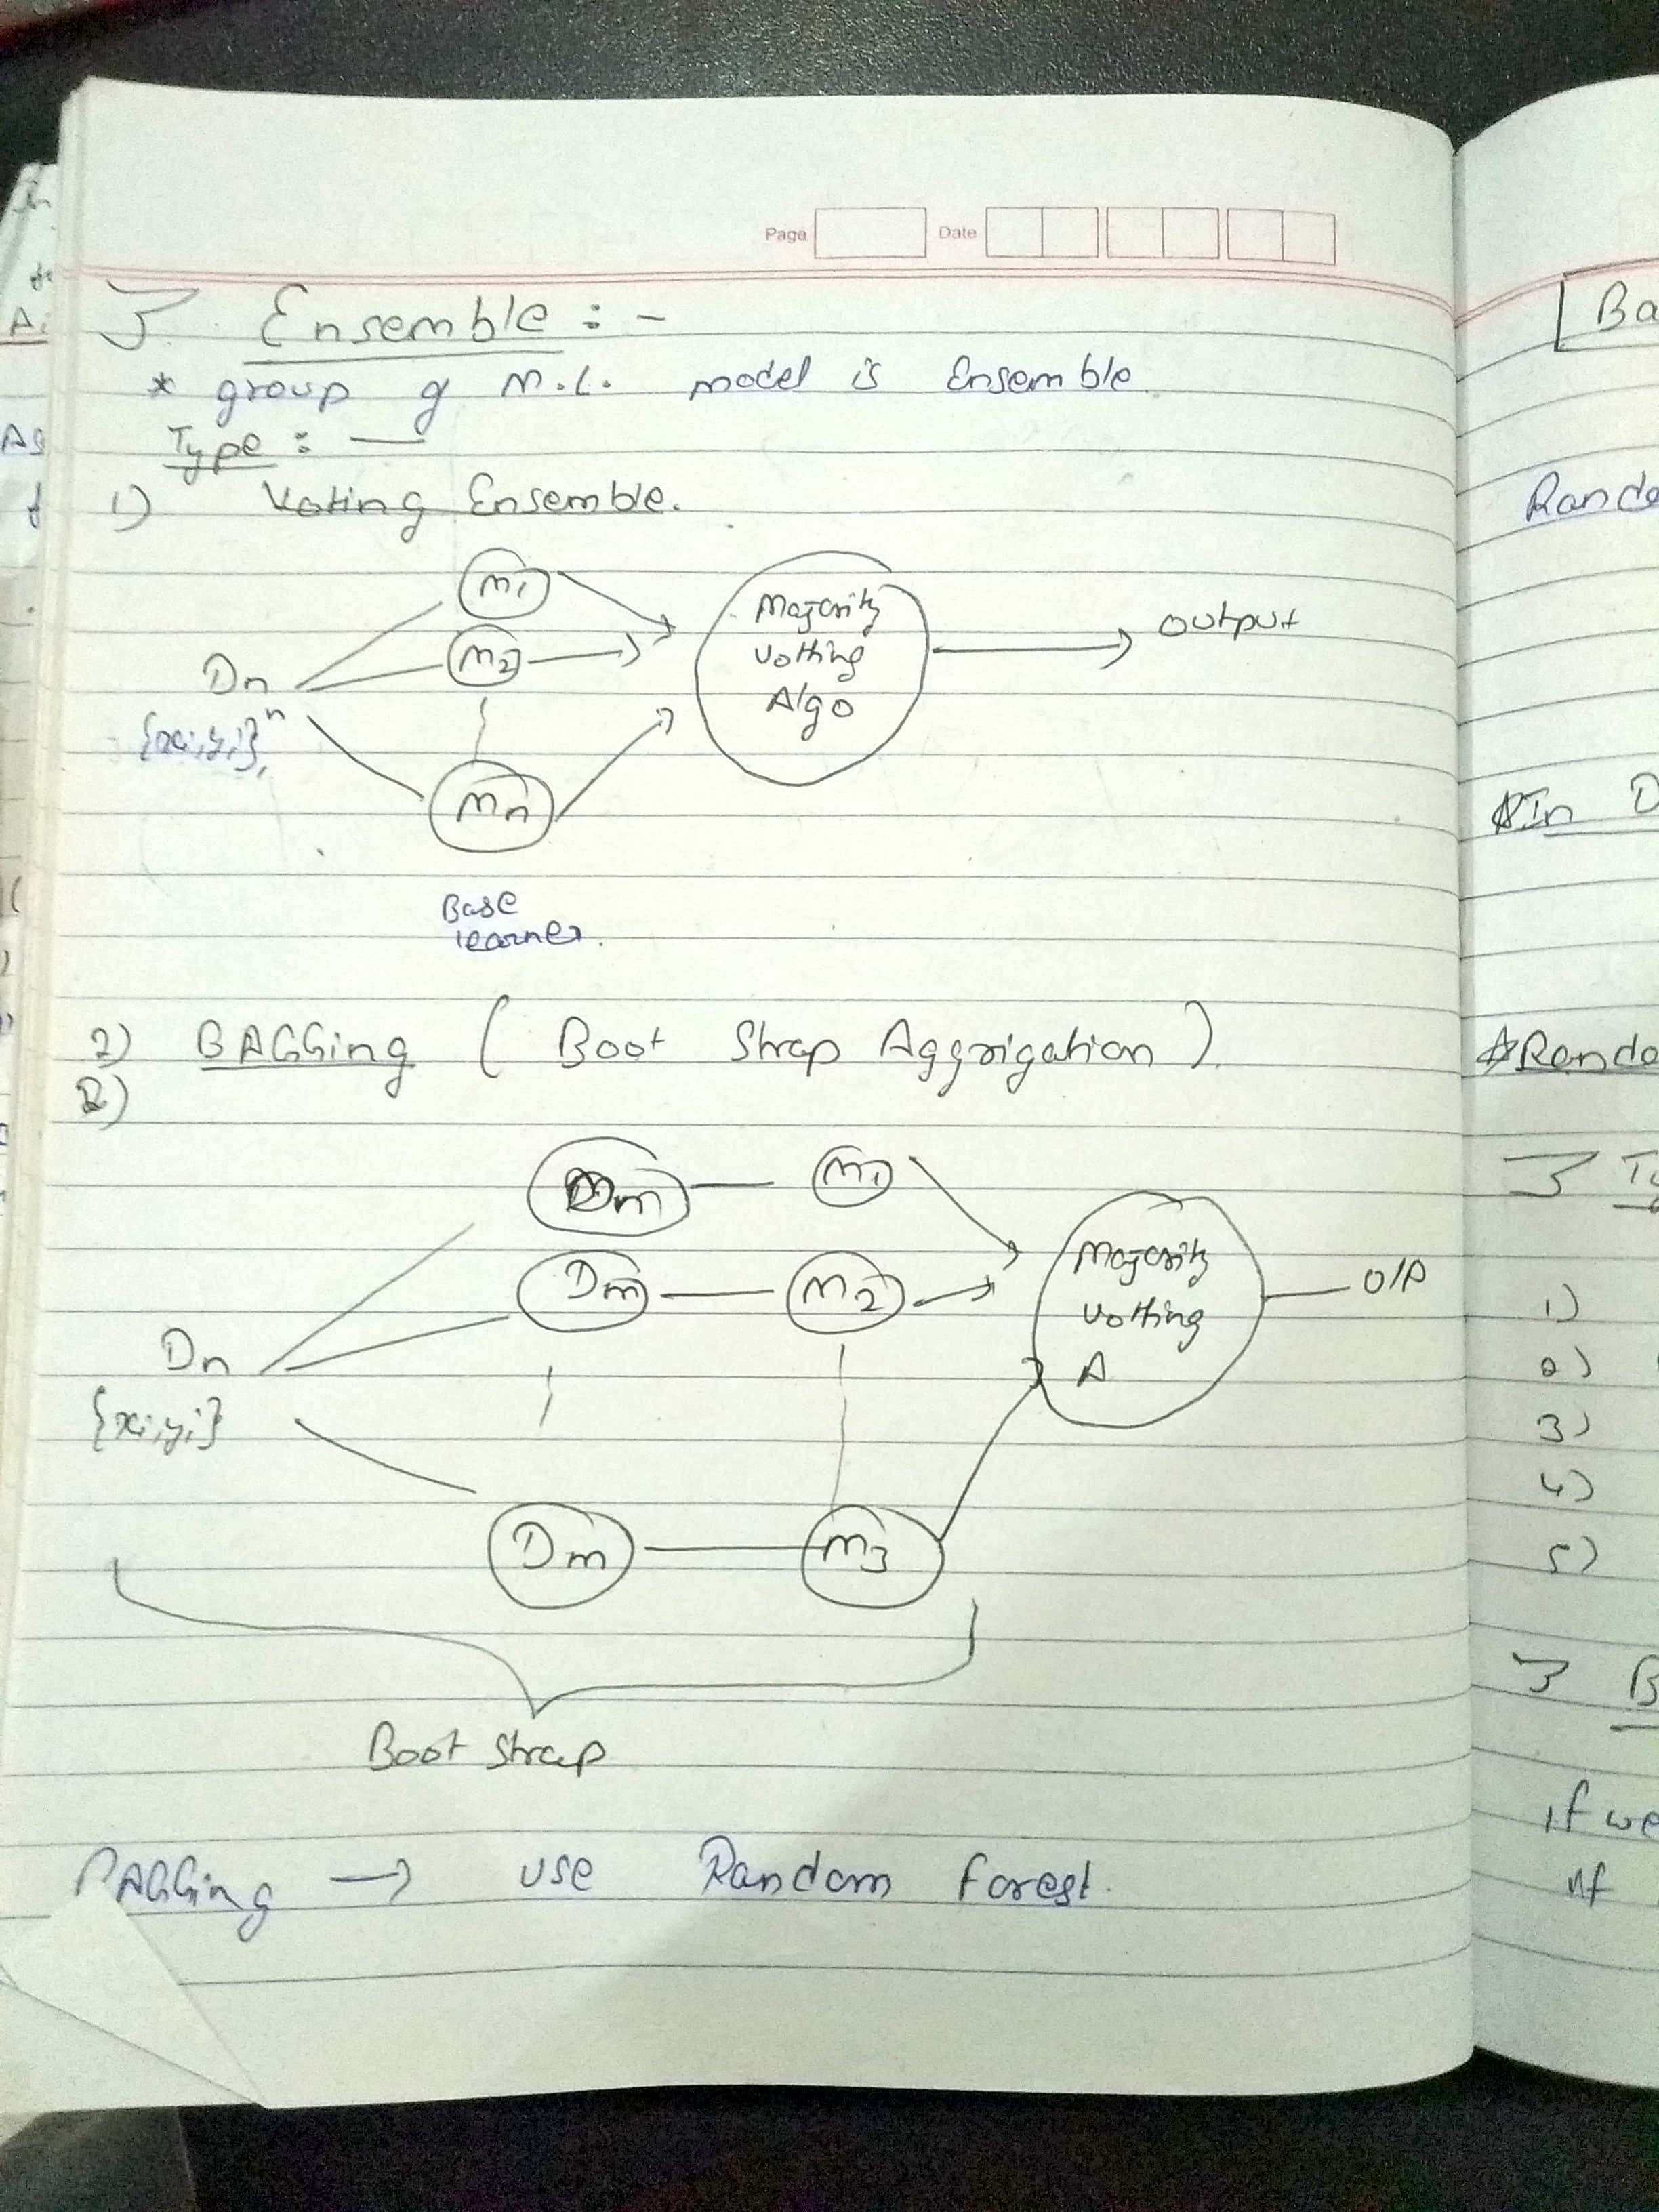 Page Date
Ensemble : -
* group of M.L. model is Ensemble.
Type : —
1) Voting Ensemble.
M1
M2
Dn
{xi, yi}ⁿ₁
Mn
Majority
Votting
Algo
output
Base
learner.
2) BAGGing ( Boot Strap Aggrigation )
2)
Dm M1
Dm M2
Dn
{xi, yi}
Dm M3
Majority
Votting
A
O/P
Boot Strap
BAGGing → use Random Forest.
Ba
Rando
In D
Rando
Ty
1)
2)
3)
4)
5)
B
if we